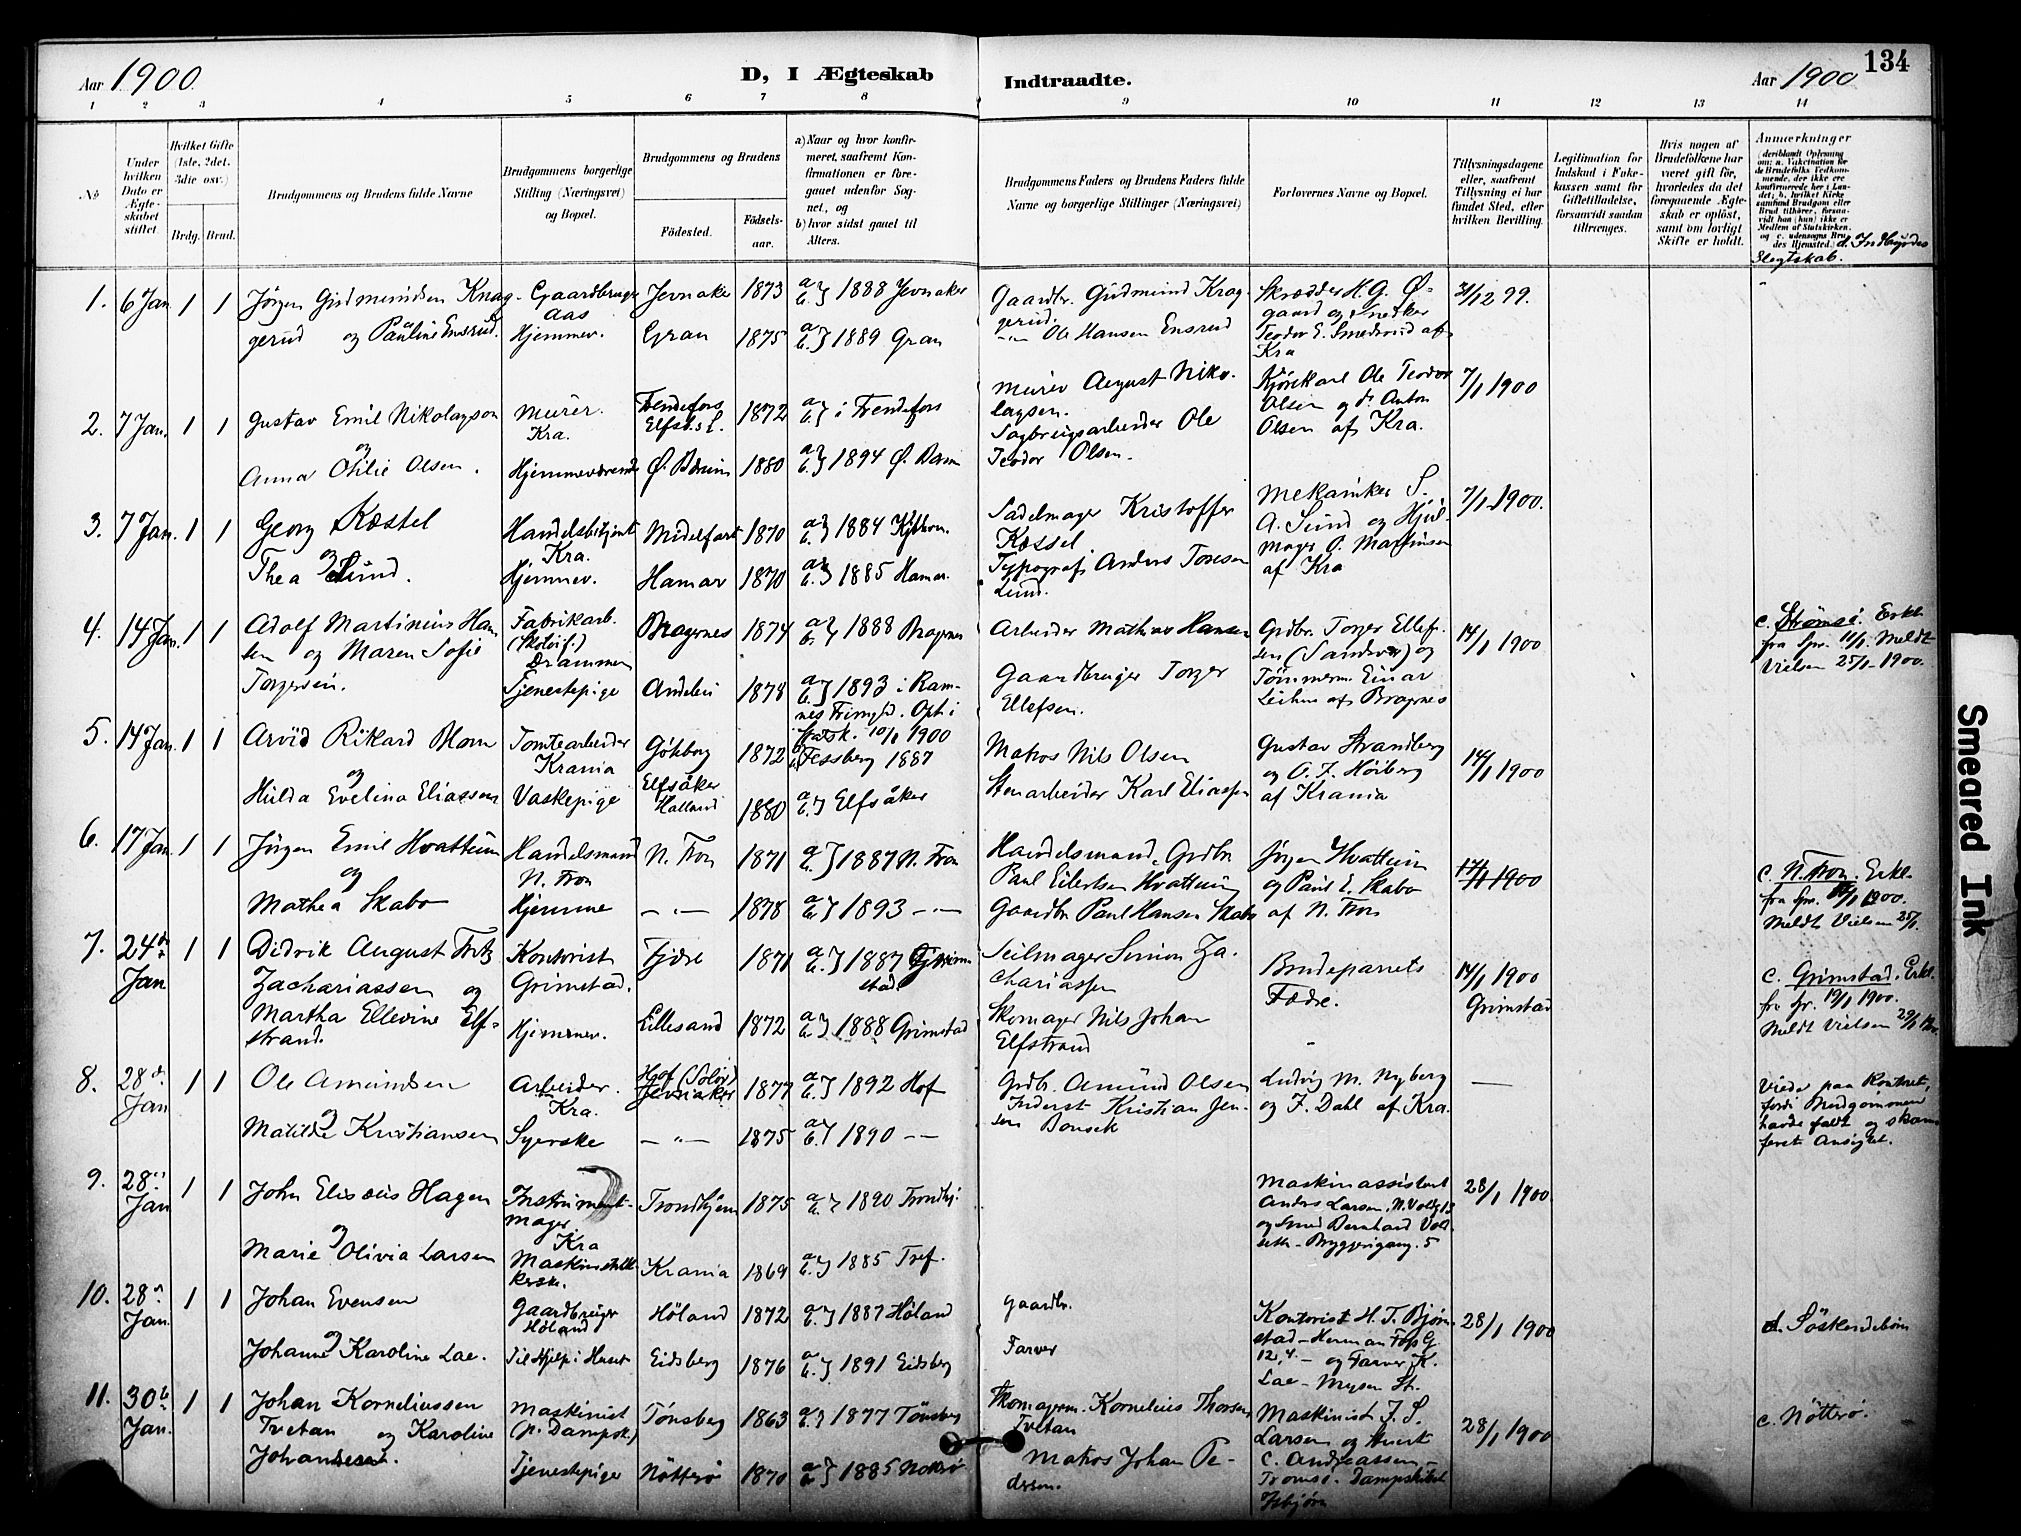 Aar 1900.
D, I Ægteskab
Indtraadte.
Aar 1900
134
1 2 3 4 5 6 7 8 9 10 11 12 13 14
No
Under hvilken Dato er Ægteskabet stiftet.
Hvilket Gifte (1ste, 2det, 3die osv.)
Brdg. Brud.
Brudgommens og Brudens fulde Navne
Brudgommens borgerlige Stilling (Næringsvei) og Bopæl.
Brudgommens og Brudens
Födested.
Födselsaar.
a) Naar og hvor konfirmeret, saafremt Konfirmationen er foregaaet udenfor Sognet, og
b) hvor sidst gaaet til Alters.
Brudgommens Faders og Brudens Faders fulde Navne og borgerlige Stillinger (Næringsvei)
Forlovernes Navne og Bopæl.
Tillysningsdagene eller, saafremt Tillysning ei har fundet Sted, efter hvilken Bevilling.
Legitimation for Indskud i Enkekassen samt for Giftetilladelse, forsaavidt saadan tiltrænges.
Hvis nogen af Brudefolkene har været gift för, hvorledes da det foregaaende Ægteskab er oplöst, samt om lovligt Skifte er holdt.
Anmærkninger
(deriblandt Oplysning om: a. Vakcination for de Brudefolks Vedkommende, der ikke ere konfirmerede her i Landet; b. hvilket Kirkesamfund Brudgom eller Brud tilhører, forsaavidt han (hun) ikke er Medlem af Statskirken, og c. udensogns Brudes Hjemsted.) d. Indbyrdes Slegtskab.
1. 6 Jan. 1 1 Jørgen Gudmundsen Knag- Gaardbruger Jevnaker 1873 a b } 1888 Jevnaker Gaardbr. Gudmund Knag- Skrædder H. G. Ø- 31/12 99.
Aas gerud. gaard og Snedker
gerud og Pauline Ensrud. Hjemmev. Gran 1875 a b } 1889 Gran —"— Ole Hansen Ensrud Teodor E. Smedsrud af
Kra
2. 7 Jan. 1 1 Gustav Emil Nikolaysen Murer. 1872 a b } i Murer August Niko- Kjørekarl Ole Teodor 7/1 1900
og Kra. laysen. Olsen og do Anton
Sagbrugsarbeider Ole Olsen af Kra.
Anna Otilie Olsen. Hjemmeværende Ø. Bærum 1880 a b } 1894 Ø. Bærum Teodor Olsen.
3. 7 Jan. 1 1 Georg Kæstel Handelsbetjent Midelfart 1870 a b } 1884 Kjøbhvn. Sadelmager Kristoffer Mekaniker S. 7/1 1900.
og Kra. Kæssel A. Lund og Hjul-
Thea Lund. Hjemmev. Hamar 1870 a b } 1885 Hamar. Typograf Anders Toresen mager O. Martinsen
Lund. af Kra
4. 14 Jan. 1 1 Adolf Martinius Han- Fabrikarb. Bragernes 1874 a b } 1888 Bragernes Arbeider Mathias Hansen Grdbr. Torger Ellef- 14/1 1900 c. Strømsö. Erkl.
sen og Maren Sofie Drammen sen (Sandsvær) og fra Spr. 11/1. Meldt
Torgersen. Tjenestepige Andebu 1878 a b } 1893 i Ram- Gaardbruger Torger Tömmerm. Einar Vielsen 25/1-1900.
nes Frimgh. Opt. i Ellefsen. af Bragnes
5. 14 Jan. 1 1 Arvid Rikard Blom Tomtearbeider Göteborg 1872 Statsk. 10/1 1900 Matros Nils Olsen Gustav Strandberg 14/1 1900
og Krania Fessberg 1887 og O. F. Höiberg
Hulda Evelina Eliassen Vaskepige Elfsåker Halland 1880 a b } Elfsåker Stenarbeider Karl Eliassen af Krania
6. 17 Jan. 1 1 Jørgen Emil Hvattum Handelsmand N. Fron 1871 a b } 1887 N. Fron Handelsmand, Grdbr. Jørgen Hvattum 17/1 1900 c. N. Fron. Erkl.
og N. Fron Paul Eilertsen Hvattum og Paul E. Skabo fra Spr. 1900.
Mathea Skabo Hjemme —"— 1878 a b } 1893 —"— Gaardbr. Paul Hansen Skabo af N. Fron Meldt Vielsen 25/1.
7. 24de Jan 1 1 Didrik August Fritz Kontorist Fjære 1871 a b } 1887 Grimstad Seilmager Simon Za- Brudeparrets 14/1 1900 c. Grimstad. Erkl.
Zachariassen og Grimstad. chariassen Fædre. Grimstad fra Spr. 19/1 1900.
Martha Ellevine Elf- Hjemmev. Lillesand 1872 a b } 1888 Grimstad Skomager Nils Johan Meldt Vielsen 29/1
strand. Elfstrand
8. 28de Jan 1 1 Ole Amundsen Arbeider. Hof (Solør) 1877 a b } 1892 Hof Grdbr. Amund Olsen Ludvig M. Nyberg — Viede paa Kontoret,
og Kra. Jevnaker Inderst Kristian Jen- og F. Dahl af Kra. fordi Brudgommen
Matilde Kristiansen Syerske —"— 1875 a b } 1890 —"— sen havde faldt og skam-
feret Ansigtet.
9. 28de Jan 1 1 John Elisæus Hagen Instrument- Trondhjem 1875 a b } 1890 Trondhj. Maskinassistent 28/1 1900
og mager Kra Anders Larsen,
Marie Olivia Larsen Krania 1869 a b } 1885 Tref. og Smed Bernhard
Bryggerigang. 5
10. 28de Jan. 1 1 Johan Evensen Gaardbruger Höland 1872 a b } 1887 Höland Gaardbr. Kontorist H. T. Bjørn- 28/1 1900 d. Söskendebörn
og Höland stad - Herman Foss G.
Johanne Karoline Lae. Til Hjelp i Huset Eidsberg 1876 a b } 1891 Eidsberg Farver 12, 4. - og Farver K.
Lae - Mysen St.
11. 30te Jan. 1 1 Johan Korneliussen Maskinist Tönsberg 1863 a b } 1877 Tönsberg Skomagerm. Kornelius Thorsen Maskinist J. S. 28/1 1900 c. Nötterö.
Tvetan og Karoline (p. Dampsk.) Tvetan Larsen og
Johansen. Tjenestepige Nötterö 1870 a b } 1885 Nötterö Matros Johan Pe- C. Andreassen -
dersen. Tromsö. Dampskibet
Isbjørn
Smeared Ink